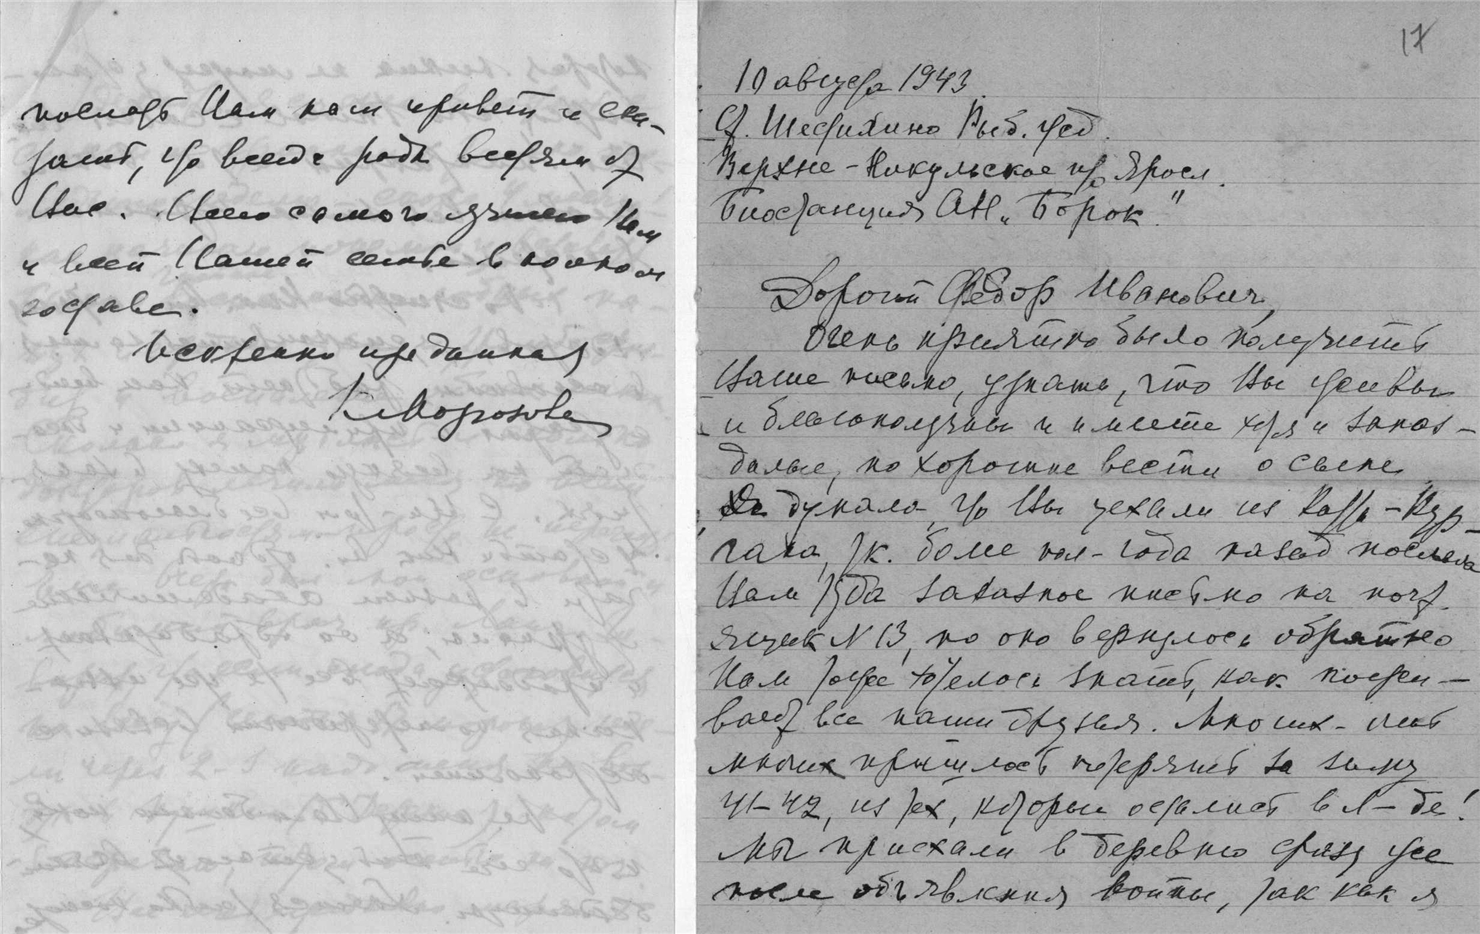 послать Вам наш привет и ска-
зать, что всегда рады вестям от
Вас. Всего самого лучшего Вам
и всей Вашей семье в полном
составе.
Искренно преданная
К Морозова
17
10 августа 1943.
ст. Шестихино Рыб. жел.
Верхне-Никульское п/о Яросл.
Биостанция АН „Борок"
Дорогой Федор Иванович,
очень приятно было получить
Ваше письмо, узнать, что Вы живы
и благополучны и имеете хотя и запоз-
далые, но хорошие вести о сыне.
Я думала, что Вы уехали из Катты-Кур-
гана, т.к. более пол-года назад послала
Вам туда заказное письмо на почт.
ящик N 13, но оно вернулось обратно
Нам тоже хотелось знать, как пожи-
вают все наши друзья. Многих-
многих пришлось потерять за зиму
41-42, из тех, которые остались в Л-де!
Мы приехали в деревню сразу же
после объявления войны, так как я